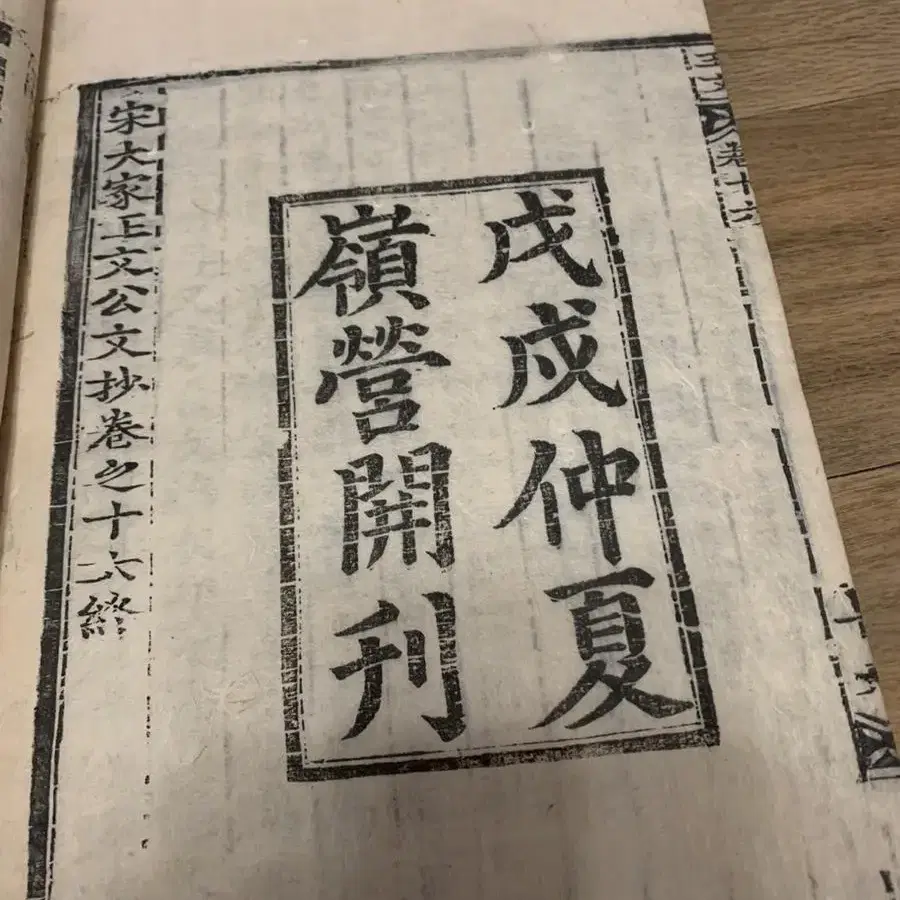 卷十六
戊戌仲夏
嶺營開刊
宋大家王文公文抄卷之十六終